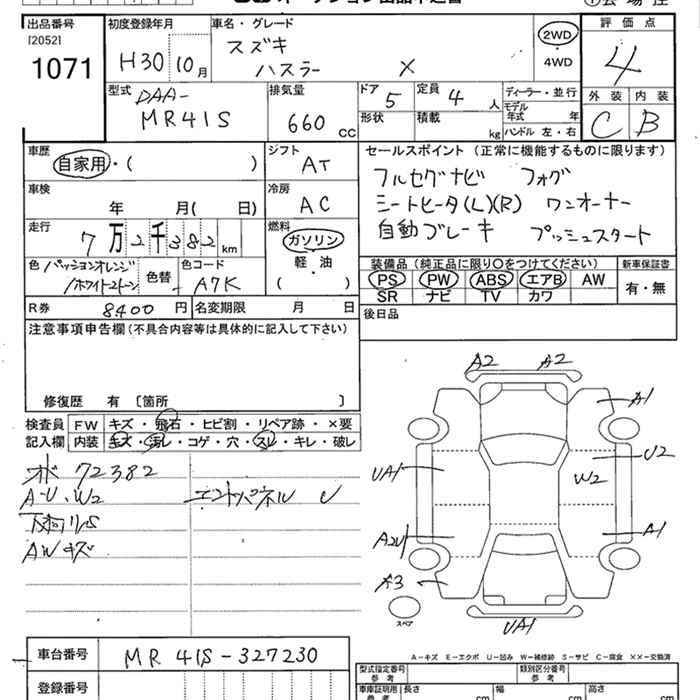 出品番号
[2052]
1071
初度登録年月
H30 10月
車名・グレード
スズキ
ハスラー X
2WD
・
4WD
評価点
4
外装 内装
C B
型式
DAA-
MR41S
排気量
660 cc
ドア
5
形状
定員
4 人
積載
kg
ディーラー・並行
モデル年式 年式
ハンドル 左・右
車歴
自家用・( )
車検
年 月( 日)
走行
7万2千382km
色 パッションオレンジ
/ホワイト2トーン
色替
色コード
A7K
シフト
AT
冷房
AC
燃料
ガソリン
軽・油
( )
セールスポイント (正常に機能するものに限ります)
フルセグナビ フォグ
シートヒータ(L)(R) ワンオーナー
自動ブレーキ プッシュスタート
装備品 (純正品に限り○をつけてください)
PS PW ABS エアB AW
SR ナビ TV カワ
新車保証書
有・無
R券 8400 円
名変期限 月 日
後日品
注意事項申告欄(不具合内容等は具体的に記入して下さい)
修復歴 有 [箇所 ]
検査員
記入欄
FW キズ・飛石・ヒビ割・リペア跡・×要
内装 キズ・汚レ・コゲ・穴・スレ・キレ・破レ
72382
A-U・W2 エンドパネル U
下廻りS
AWキズ
A2 A2
A1
U2
UA1
W2
A1
A2U
A3
UA1
スペア
A-キズ E-エクボ U-凹み W-補修跡 S-サビ C-腐食 XX-交換済
車台番号 MR41S-327230
登録番号
型式指定番号
参考
類別区分番号
参考
車庫証明用
参考
長さ cm
幅 cm
高さ cm